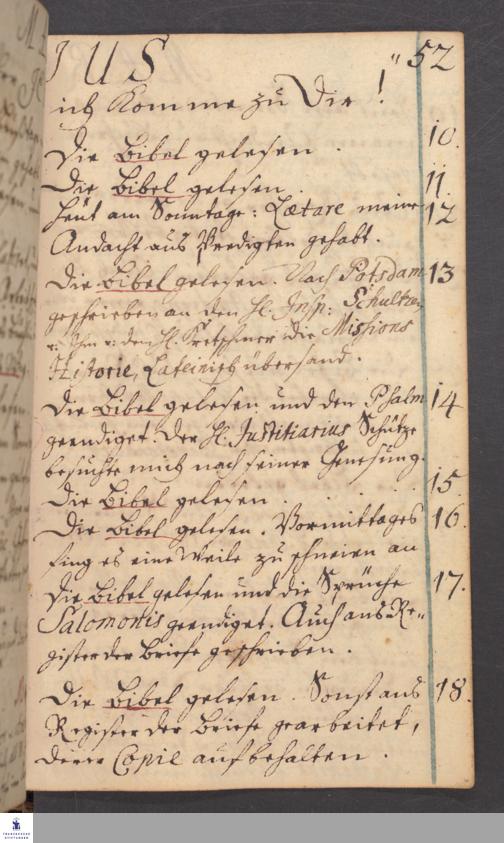 IUS " 52
ich komme zu Dir!
Die Bibel gelesen. 10.
Die Bibel gelesen. 11.
Heut am Sonntage: Lætare meine 12
Andacht aus Predigten gehabt.
Die Bibel gelesen. Nach Potsdam 13
geschrieben an den H. Insp: Schultze,
u. Ihm u: den H. Kretschmer die Missions
Historie, Lateinisch übersand.
Die Bibel gelesen und den Psalm 14
geendiget. Der H. Justitiarius Schütze
besuchte mich nach seiner Genesung.
Die Bibel gelesen. 15.
Die Bibel gelesen. Vormittages 16.
fing es eine Weile zu schneien an
Die Bibel gelesen und die Sprüche 17.
Salomonis geendiget. Auch ans Re„
gister der Briefe geschrieben.
Die Bibel gelesen. Sonst ans 18.
Register der Briefe gearbeitet,
derer Copie aufbehalten.
FRANCKESCHE
STIFTUNGEN